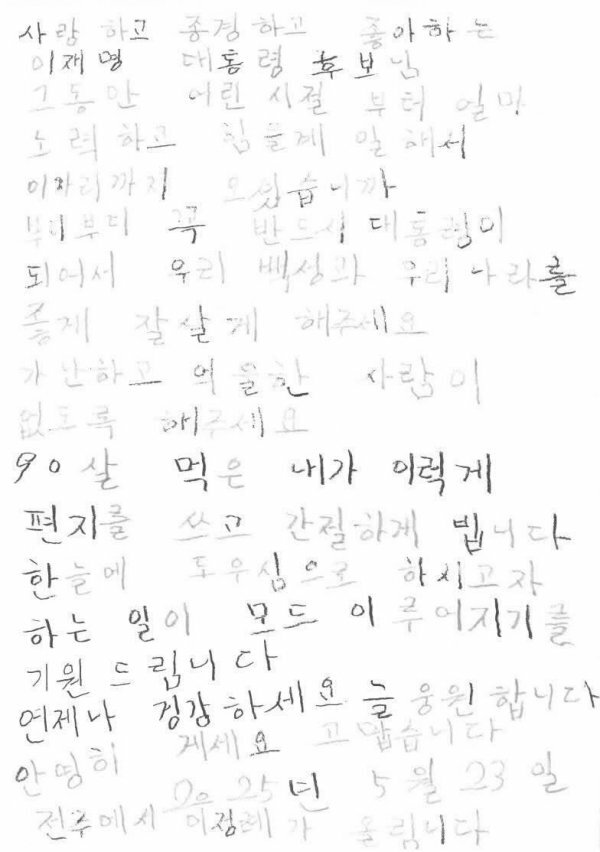 사랑 하고 종경 하고 좋아 하 는
이재명 대통령 후보님
그동안 어린 시절 부터 얼마
노력 하고 힘들게 일 해서
이자리까지 오있습니까
부디부디 꼭 반드시 대통령이
되어서 우리 백성과 우리 나라를
좋게 잘살게 해주세요
가난하고 억울한 사람이
없도록 해주세요
90살 먹은 내가 이럭게
편지를 쓰고 간절하게 빕니다
한늘에 도우심으로 하시고자
하는 일이 모드 이루어지기를
기원 드립니다
언제나 겅강하세요 늘 웅원 합니다
안영히 게세요 고맙습니다
2025년 5월 23일
전주에서 이정례가 올림니다